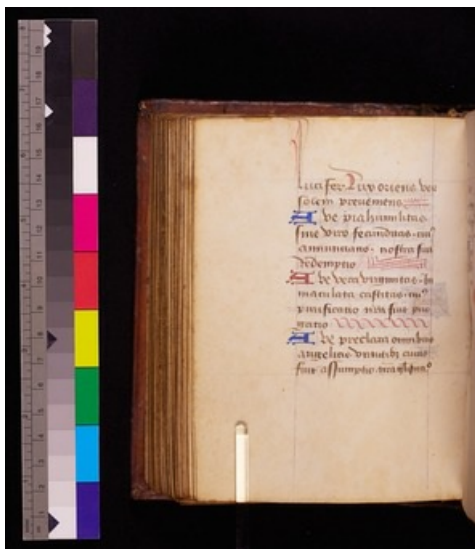 Lucifer lux oriens ver
solem preveniens
Ave pia humilitas
sine viro fecunditas
annunciatio nostra fuit
Redemptio
Ave vera virginitas
maculata castitas
purificatio nostra fuit pur
gatio
Ave preclara omnibus
angelicis virtutibus cuius
fuit assumptio